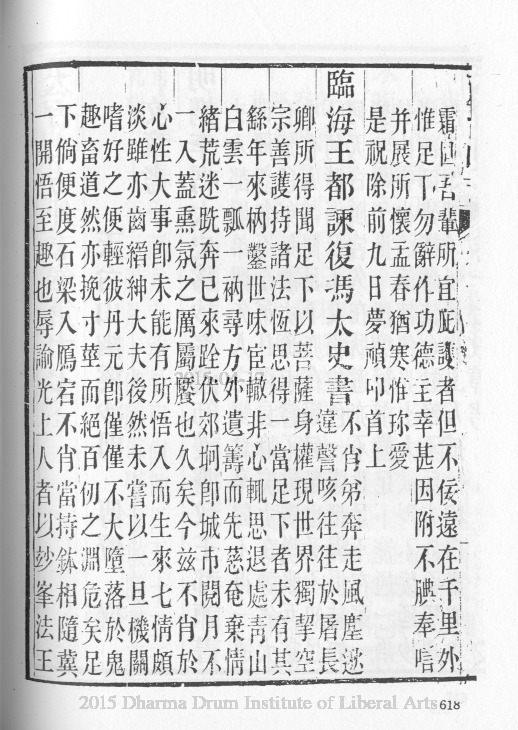 霜圓吾輩所宜庇護者但不佞遠在千里外
惟足下勿辭作功德主幸甚因附不腆奉唁
并展所懷孟春猶寒惟珍愛
是祝除前九日夢禎叩首上
臨海王都諫復馮太史書 不肖弟奔走風塵逖
違謦咳往往於屠長
卿所得聞足下以菩薩身權現世界獨挈空
宗善護持諸法恆思得一當足下者未有其
繇年來枘鑿世味宦轍非心輒思退處靑山
白雲一瓢一衲尋方外遺籌而先慈奄棄情
緒荒迷跣奔已來跧伏郊坰卽城市閱月不
一入蓋熏氛之厲屬饜也久矣今兹不肖於
心性大事卽未能有所悟入而生來七情頗
淡雖亦齒縉紳大夫後然未嘗以一旦機關
嗜好之便輕彼丹元卽僅僅不大墮落於鬼
趣畜道然亦挽寸莖而絕百仞之淵危矣足
下倘便度石梁入鴈宕不肖當持鉢相隨冀
一開悟至趣也辱諭光上人者以紗峯法王
2015 Dharma Drum Institute of Liberal Arts
618